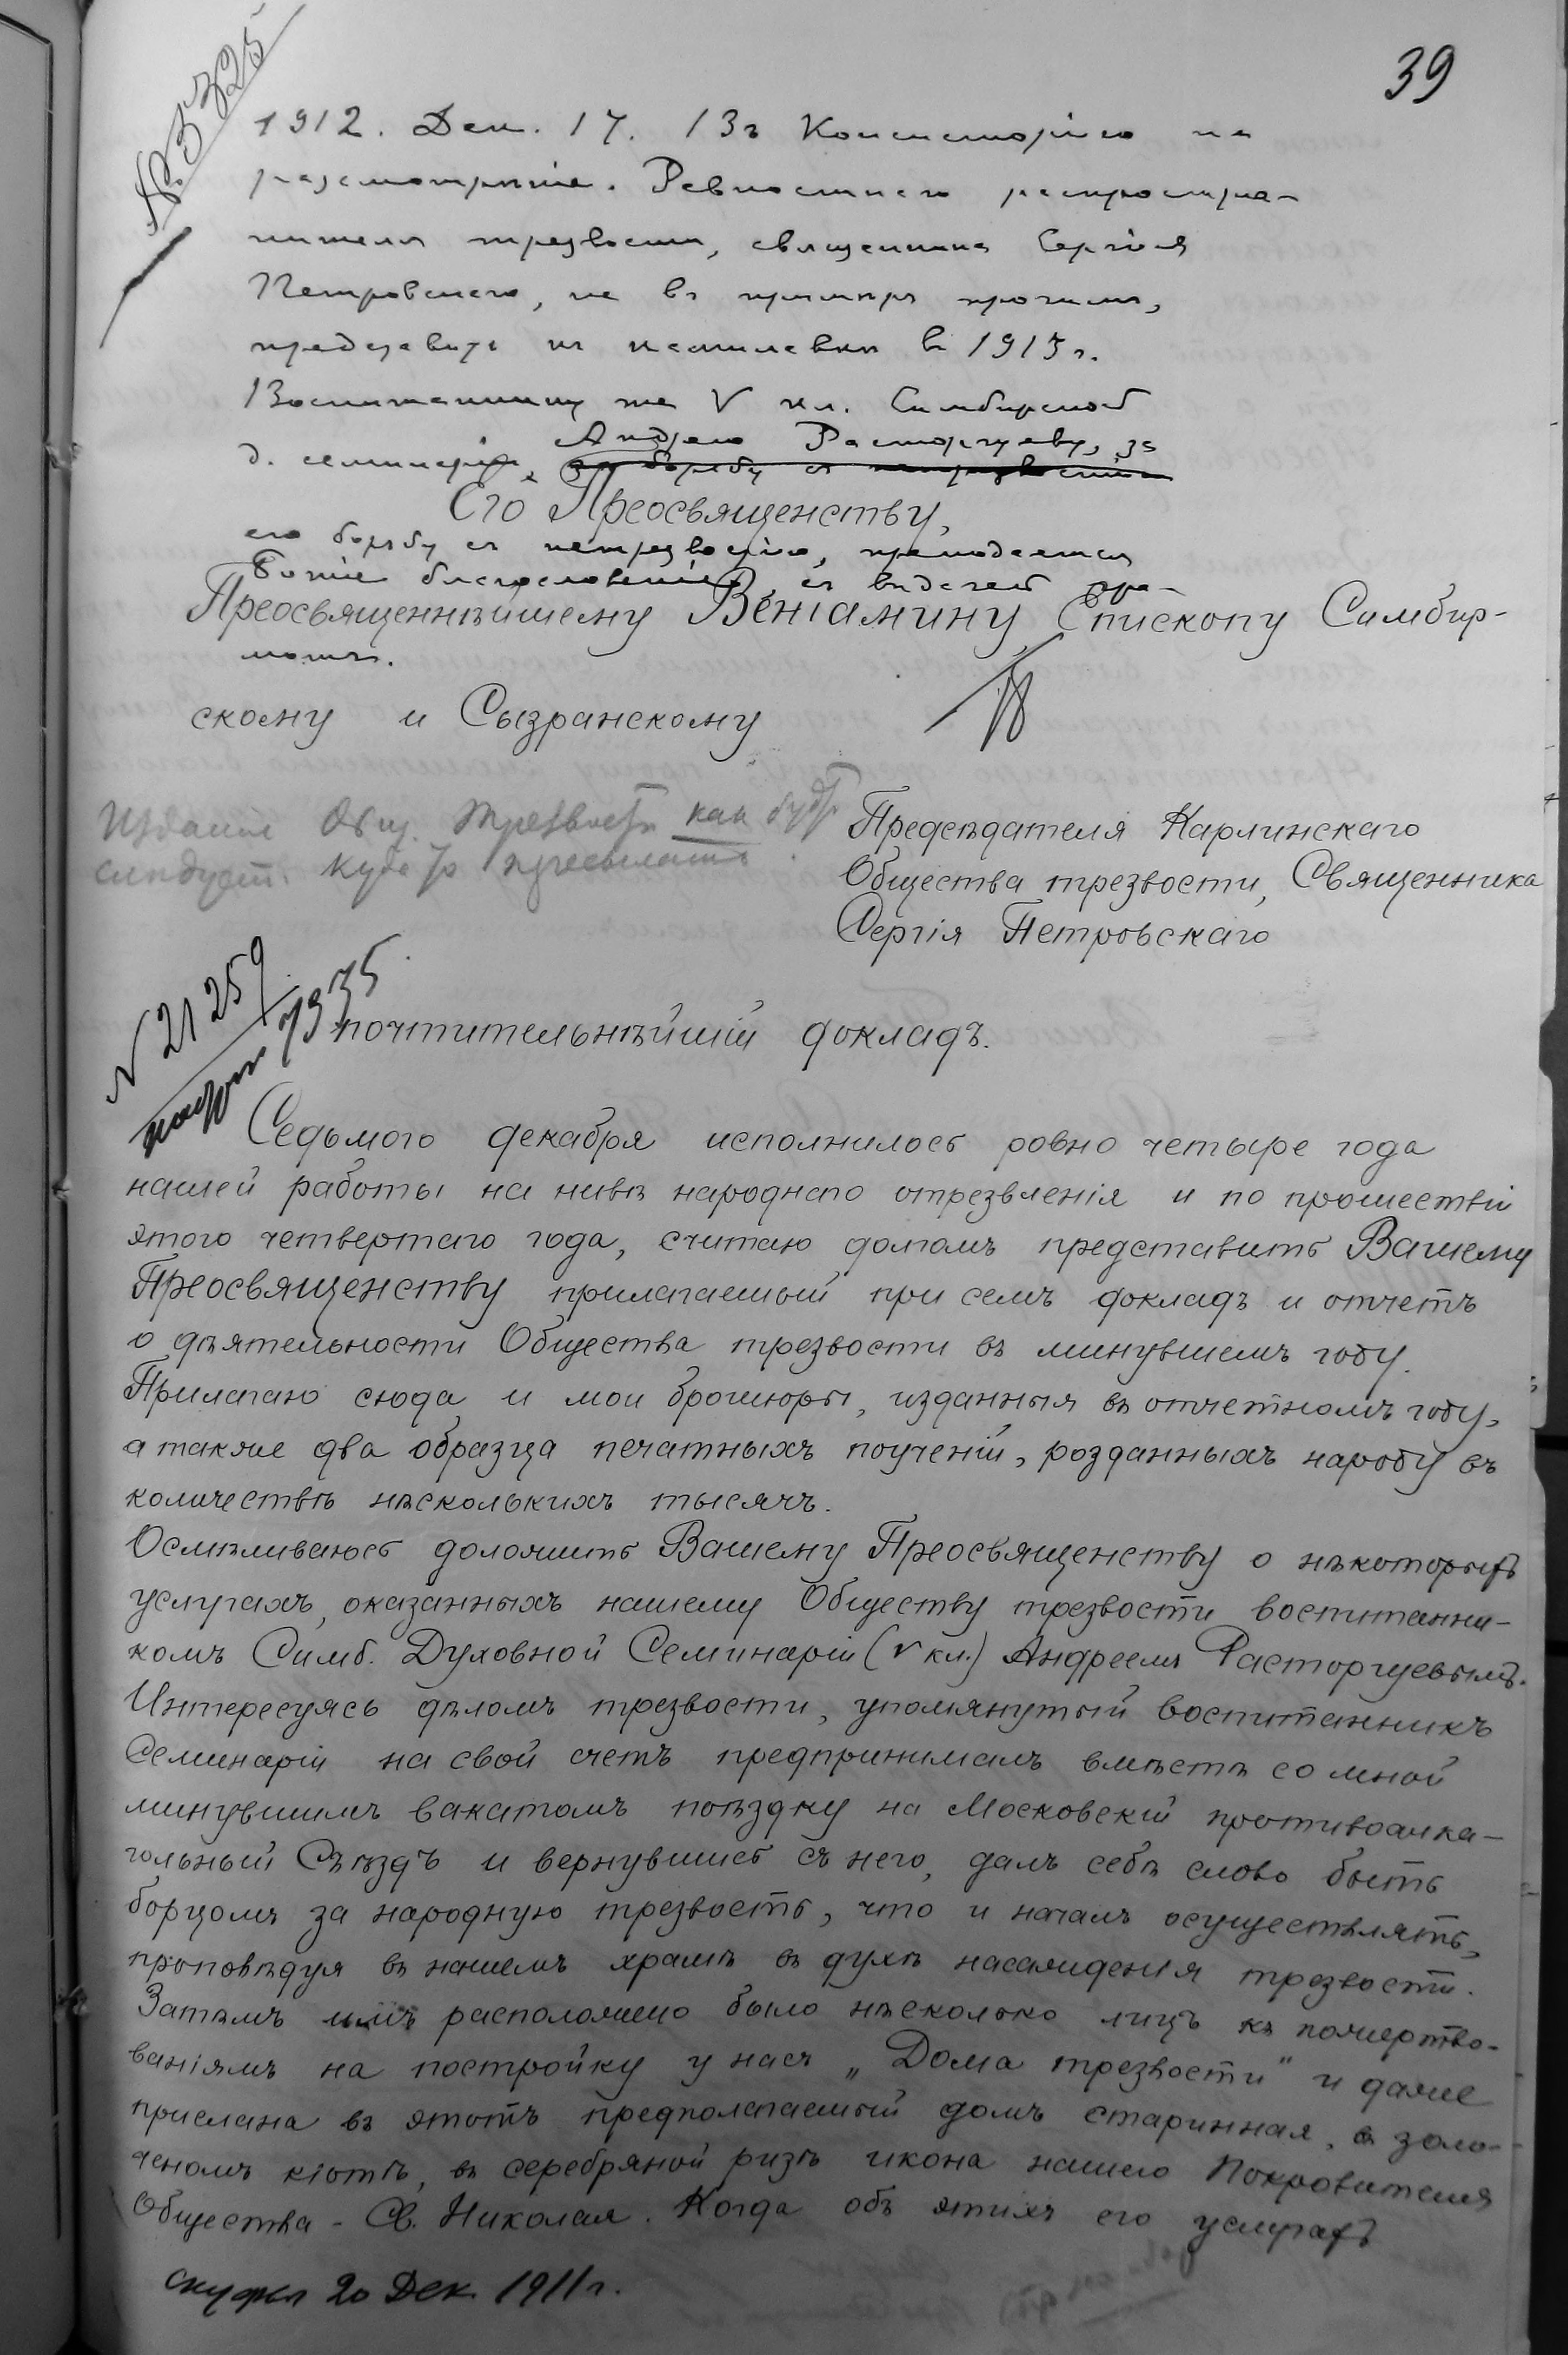 39
№ 5325
1912. Дек. 17. Въ Консисторію на
разсмотрѣніе. Ревностнаго распростра-
нителя трезвости, священника Сергія
Петровскаго, не въ примѣръ прочимъ,
представить къ камилавкѣ въ 1913 г.
Воспитаннику же V кл. Симбирской
д. семинаріи, Андрею Расторгуеву, за
за борьбу съ нетрезвостію
Его Преосвященству,
его борьбу съ нетрезвостію, преподается
Божіе благословеніе, съ выдачей гра-
Преосвященнѣйшему Веніамину, Епископу Симбир-
моты.
скому и Сызранскому
Изданіе Общ. трезвости как буд
слѣдует. куда
Предсѣдателя Карлинскаго
Общества трезвости, Священника
Сергія Петровскаго
N 21259
7935
почтительнѣйшій докладъ.
Седьмого декабря исполнилось ровно четыре года
нашей работы на нивѣ народнаго отрезвленія и по прошествіи
этого четвертаго года, считаю долгомъ представить Вашему
Преосвященству прилагаемый при семъ докладъ и отчетъ
о дѣятельности Общества трезвости въ минувшемъ году.
Прилагаю сюда и мои брошюры, изданныя въ отчетномъ году,
а также два образца печатныхъ поученій, розданныхъ народу въ
количествѣ нѣсколькихъ тысячъ.
Осмѣливаюсь доложить Вашему Преосвященству о нѣкоторыхъ
услугахъ, оказанныхъ нашему Обществу трезвости воспитанни-
комъ Симб. Духовной Семинаріи (V кл.) Андреемъ Расторгуевымъ.
Интересуясь дѣломъ трезвости, упомянутый воспитанникъ
Семинаріи на свой счетъ предпринималъ вмѣстѣ со мной
минувшимъ вакатомъ поѣздку на Московскій противоалко-
гольный Съѣздъ и вернувшись съ него, далъ себѣ слово быть
борцомъ за народную трезвость, что и началъ осуществлять,
проповѣдуя въ нашемъ храмѣ въ духѣ насажденія трезвости.
Затѣмъ имъ расположено было нѣсколько лицъ къ пожертво-
ваніямъ на постройку у насъ „Дома трезвости" и даже
прислана въ этотъ предполагаемый домъ старинная, въ золо-
ченомъ кіотѣ, въ серебряной ризѣ икона нашего Покровителя
Общества - Св. Николая. Когда объ этихъ его услугахъ
скуфья 20 Дек. 1911 г.